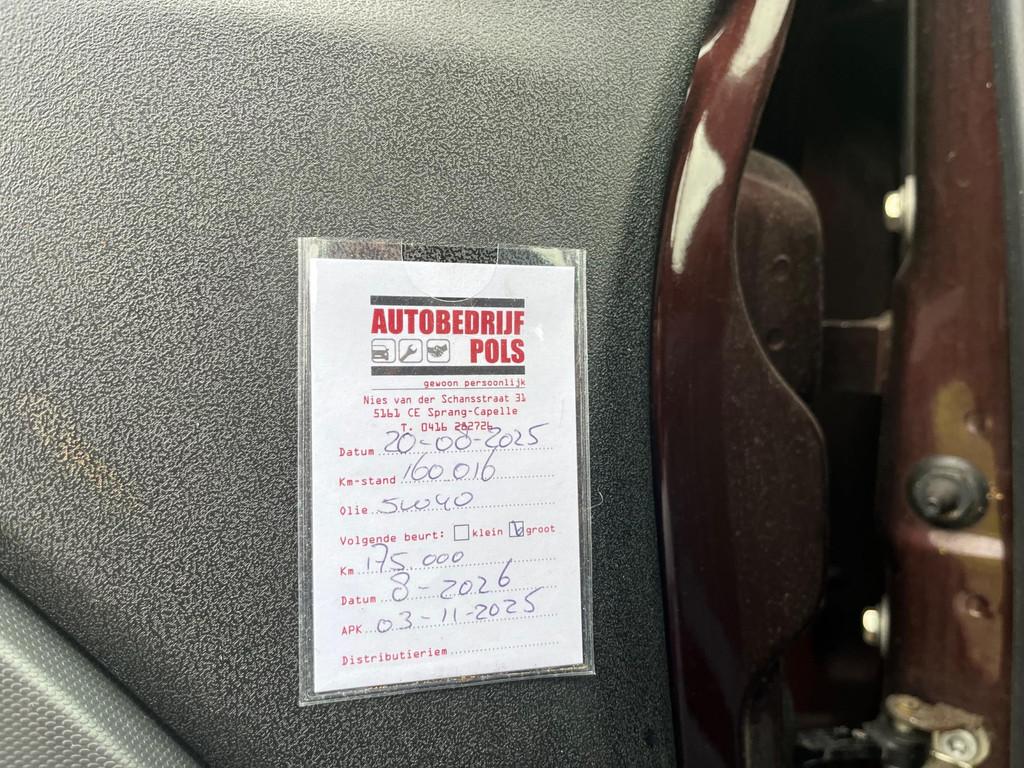 AUTOBEDRIJF
POLS
gewoon persoonlijk
Nies van der Schansstraat 31
5161 CE Sprang-Capelle
T. 0416 282726
Datum 20-08-2025
Km-stand 160.016
Olie 5W40
Volgende beurt: klein groot
Km 175.000
Datum 8-2026
APK 03-11-2025
Distributieriem